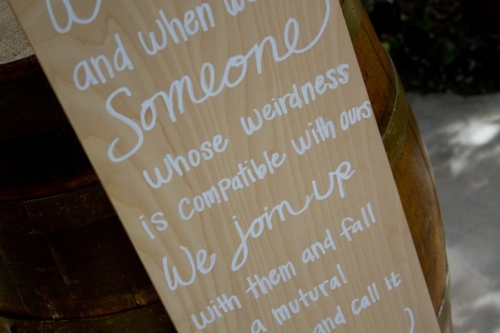 and when w
Someone
whose weirdness
is compatible with ours
We join up
with them and fall
a mutural
and call it